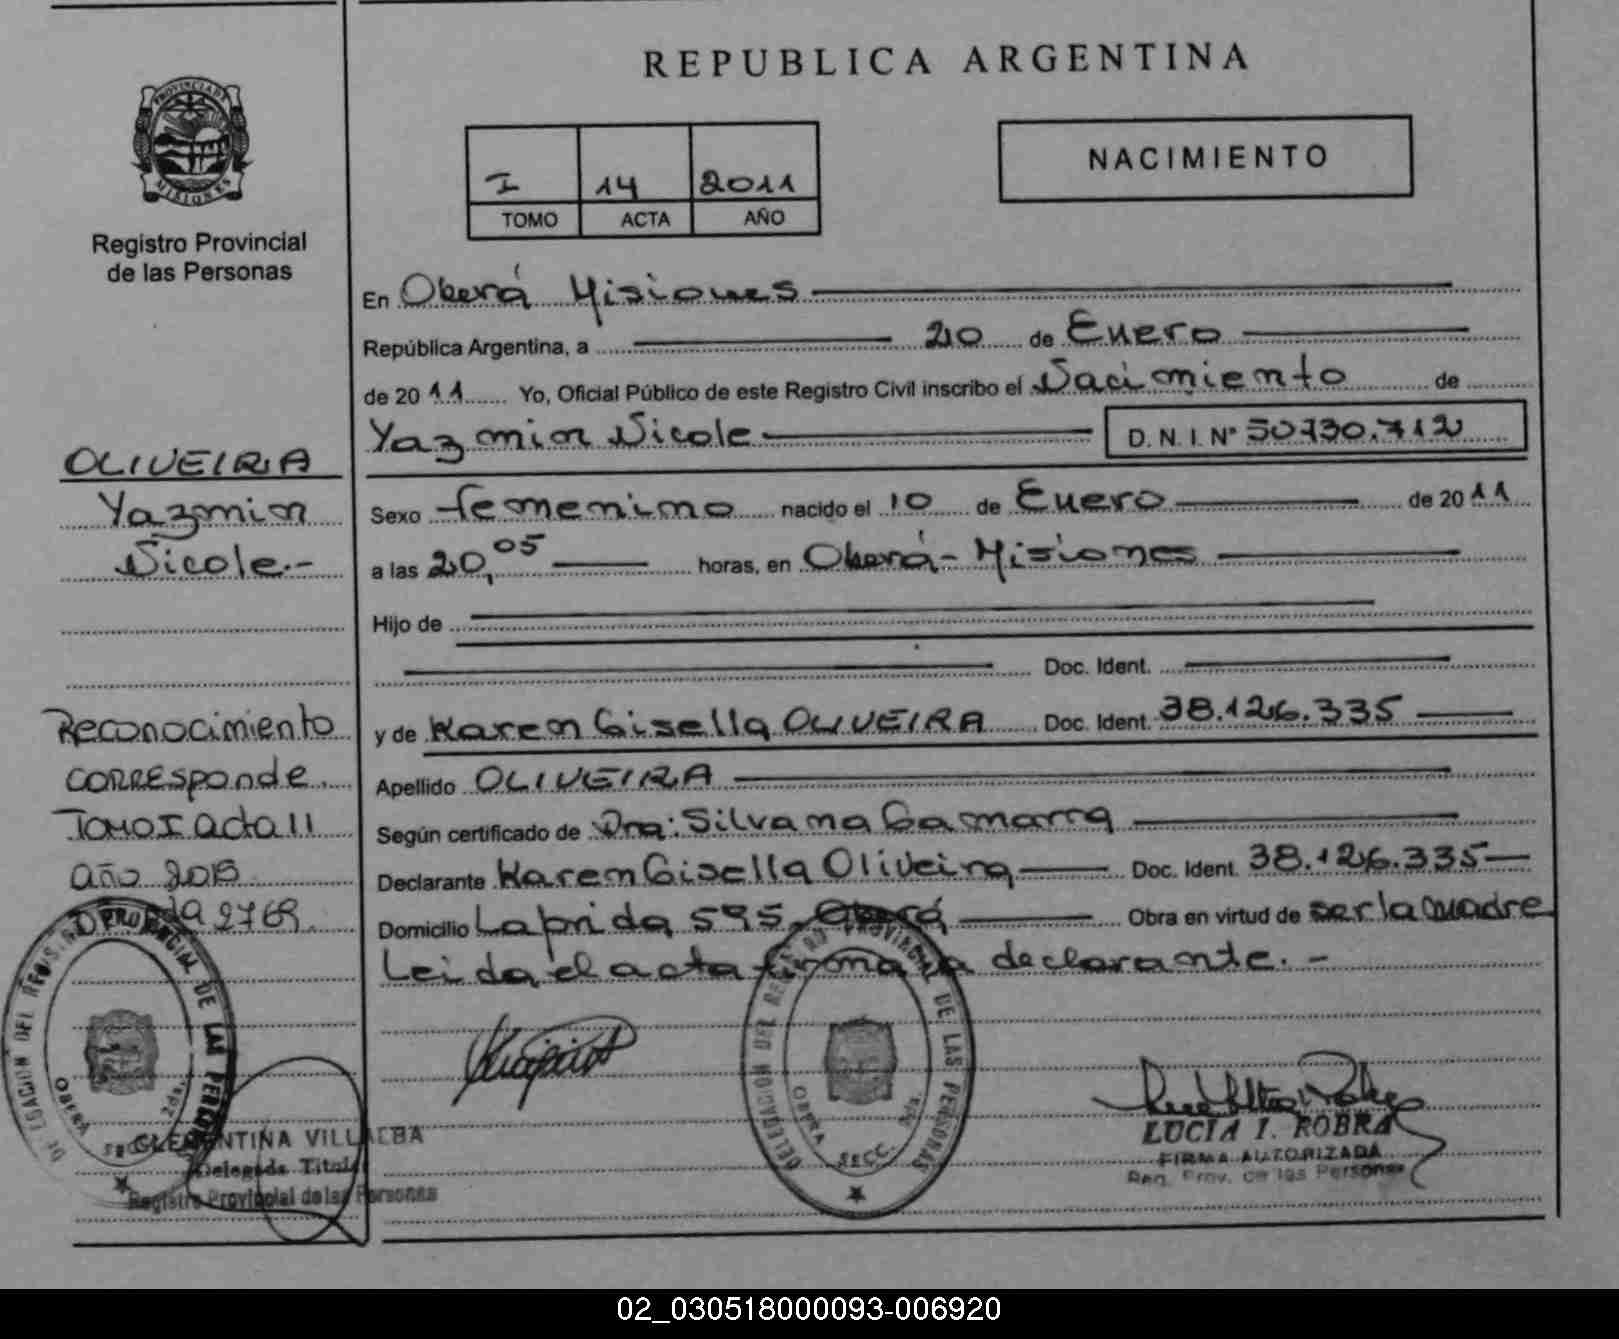 REPUBLICA ARGENTINA
PROVINCIA DE
MISIONES
Registro Provincial
de las Personas
I 14 2011
TOMO ACTA AÑO
NACIMIENTO
En Oberá Misiones
República Argentina, a 20 de Enero
de 2011 Yo, Oficial Público de este Registro Civil inscribo el Nacimiento de
Yazmin Nicole D. N. I. N° 50.730.712
OLIVEIRA
Yazmin
Nicole.-
Sexo femenino nacido el 10 de Enero de 2011
a las 20,05 horas, en Oberá-Misiones
Hijo de
Doc. Ident.
y de Karen Gisella OLIVEIRA Doc. Ident. 38.126.335
Apellido OLIVEIRA
Según certificado de Dra: Silvana Gamarra
Declarante Karen Gisella Oliveira Doc. Ident. 38.126.335
Domicilio Laprida 595 Oberá Obra en virtud de ser la madre
Leida el acta firma la declarante.-
Reconocimiento
corresponde
Tomo I acta 11
año
2769.
DELEGACION DEL REGISTRO PROVINCIAL DE LAS PERSONAS
OBERA SECC. 2da.
CLEMENTINA VILLALBA
Delegada Titular
Registro Provincial de las Personas
DELEGACION DEL REGISTRO PROVINCIAL DE LAS PERSONAS
OBERA SECC.
LUCIA I. ROBRA
FIRMA AUTORIZADA
Reg. Prov. de las Personas
02_030518000093-006920